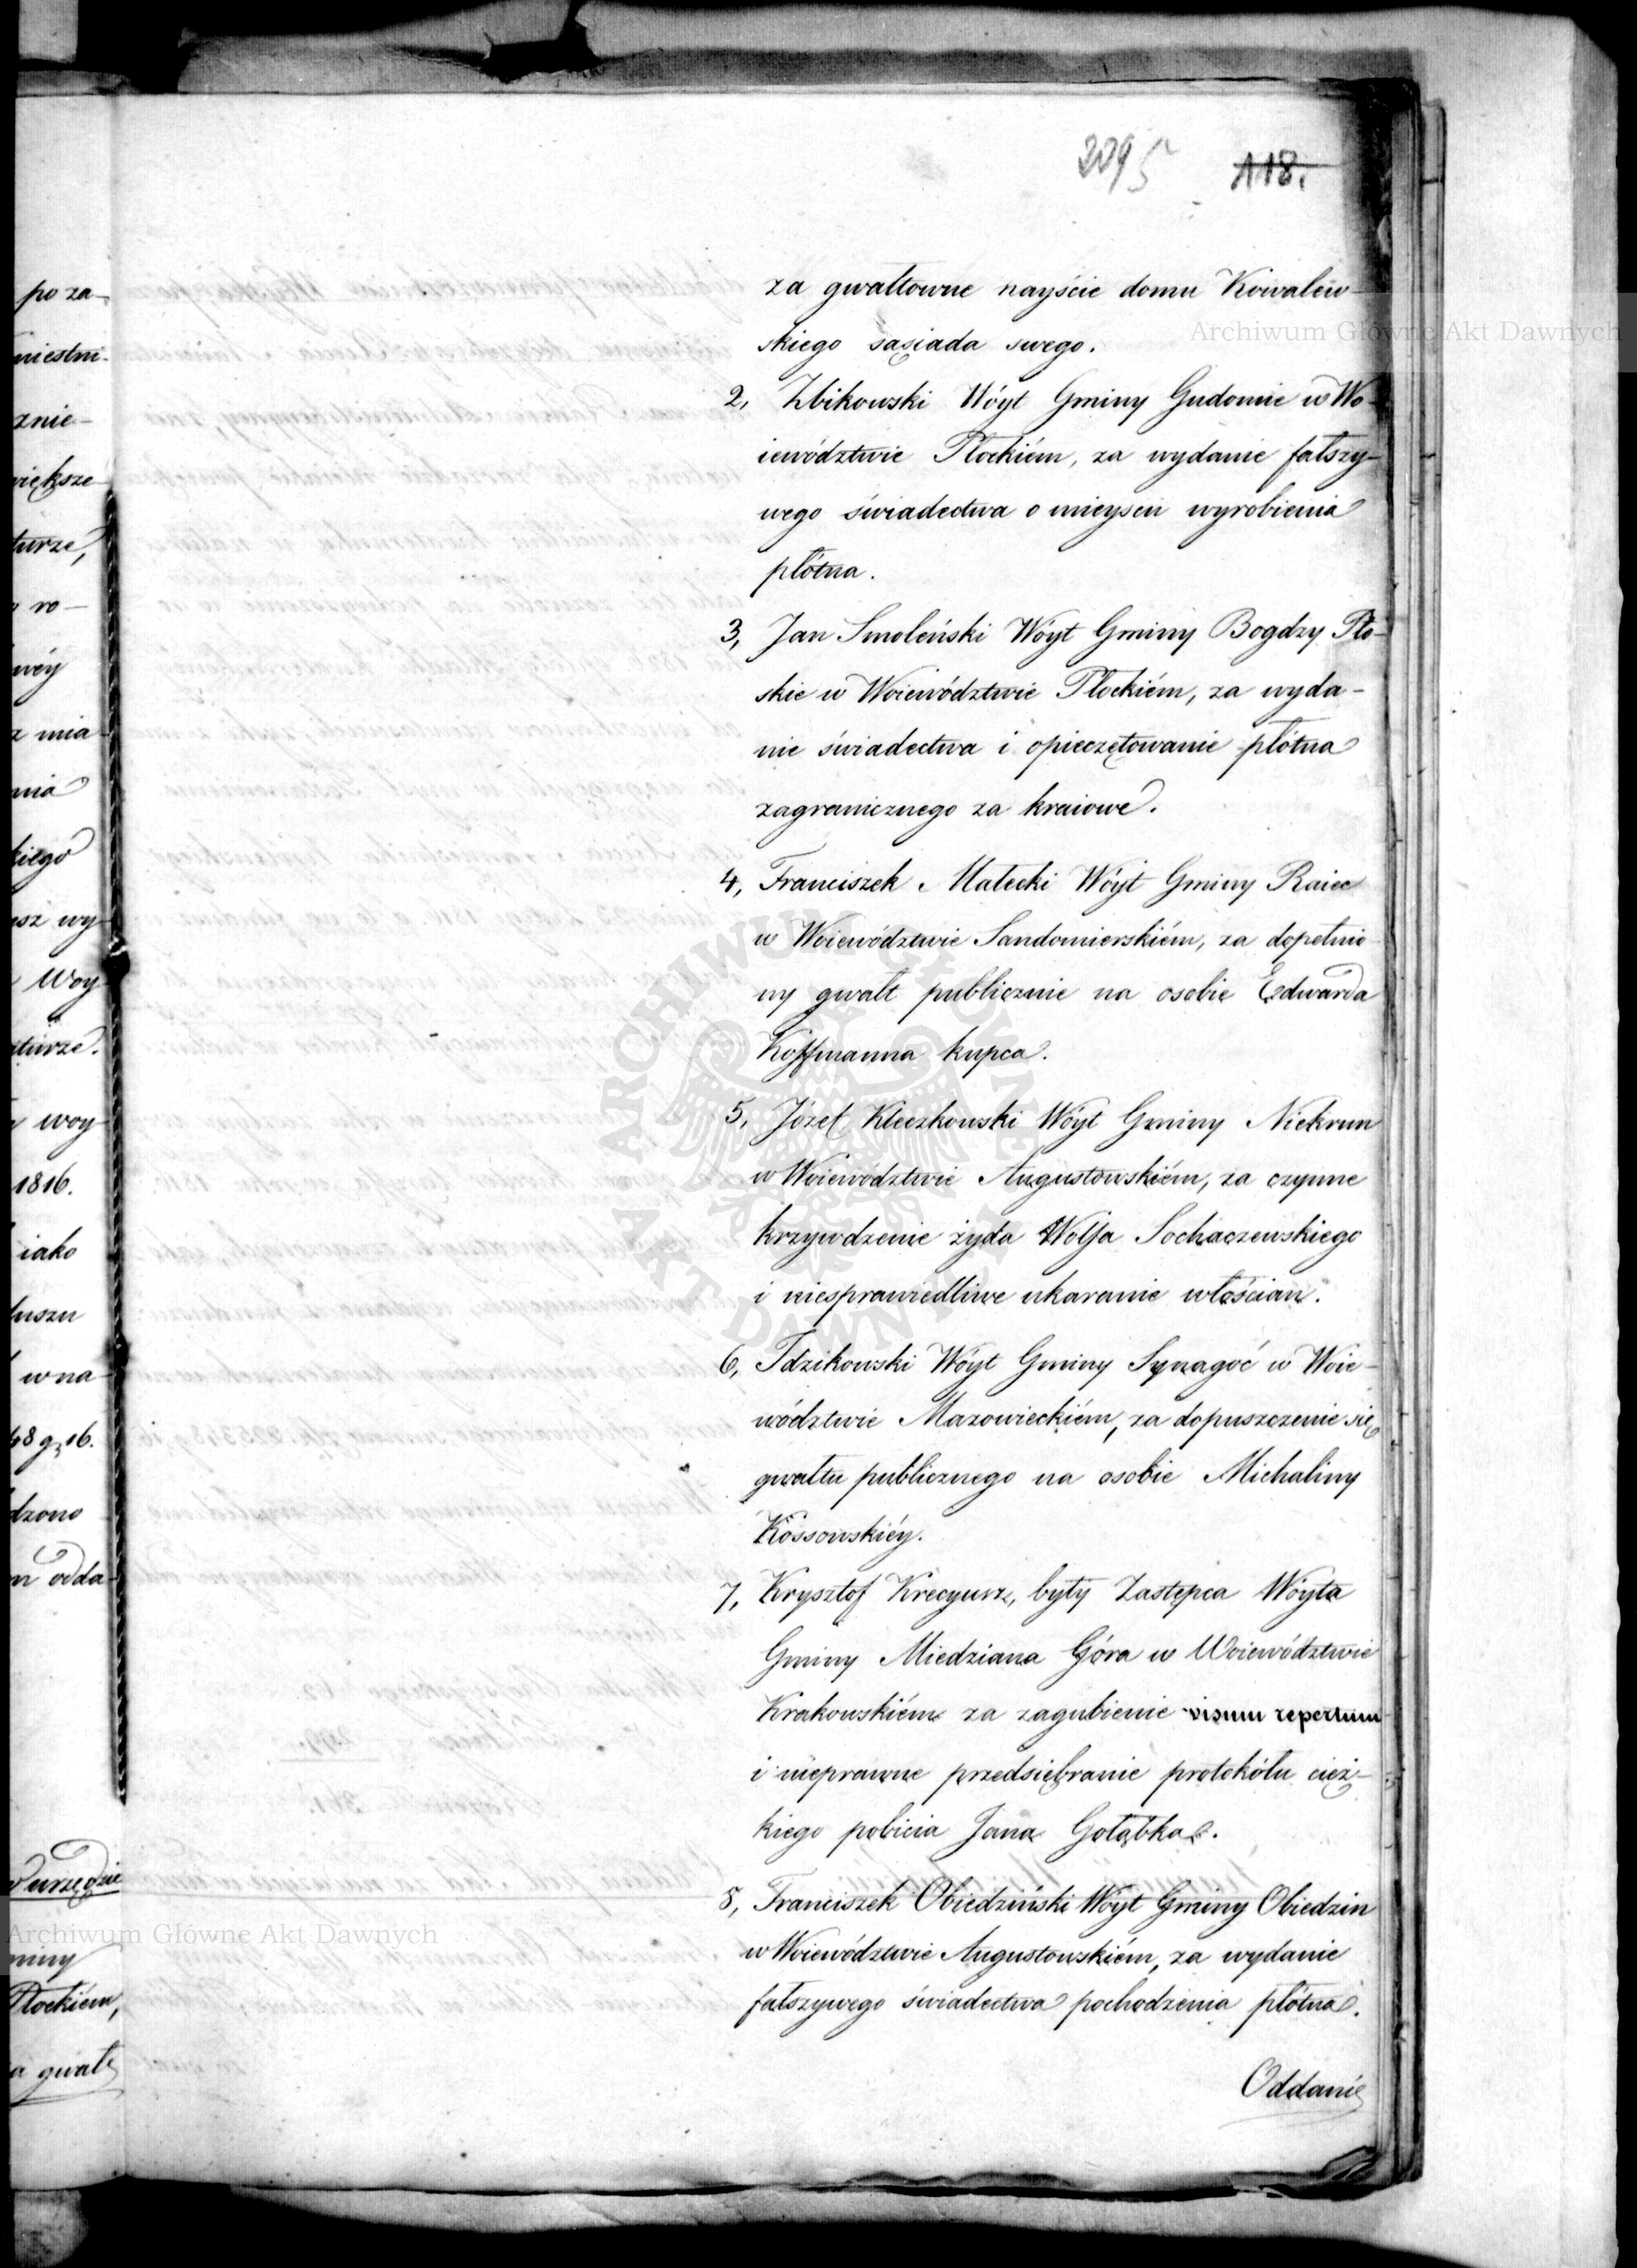 po za-
miestni-
znie-
większe
turze,
ro-
wéy
z mia
nia
kiego
usz wy
Woy
turze.
woy
1816.
iako
uszu
w na
48 gr 16.
dzono
m odda-
w urzędzie
miny
Płockiem,
a gwałt
2095 118.
za gwałtowne nayście domu Kowalew-
skiego sąsiada swego.
2, Zbikowski Wóyt Gminy Gudomie w Wo-
iewództwie Płockiém, za wydanie fałszy-
wego świadectwa o mieyscu wyrobienia
płótna.
3, Jan Smoleński Wóyt Gminy Bogdzy Pło-
skie w Woiewództwie Płockiém, za wyda-
nie świadectwa i opieczętowanie płótna
zagranicznego za kraiowe.
4, Franciszek Małecki Wóyt Gminy Raiec
w Woiewództwie Sandomierskiém, za dopełnio-
ny gwałt publicznie na osobie Edwarda
Koffmanna kupca.
5, Józef Kleczkowski Wóyt Gminy Niekrun
w Woiewództwie Augustowskiém, za czynne
krzywdzenie żyda Wolfa Sochaczewskiego
i niesprawiedliwe ukaranie włościan.
6, Idzikowski Wóyt Gminy Synagoć w Woie-
wództwie Mazowieckiém, za dopuszczenie się
gwałtu publicznego na osobie Michaliny
Kossowskiéy.
7, Krysztof Krecyusz, były Zastępca Wóyta
Gminy Miedziana Góra w Woiewództwie
Krakowskiém za zagubienie visum repertum
i nieprawne przedsiębranie protokółu cięż-
kiego pobicia Jana Gołąbka.
8, Franciszek Obiedziński Wóyt Gminy Obiedzin
w Woiewództwie Augustowskiém, za wydanie
fałszywego świadectwa pochodzenia płótna.
Oddanie
Archiwum Główne Akt Dawnych
ARCHIWUM GŁÓWNE
AKT DAWNYCH
Archiwum Główne Akt Dawnych